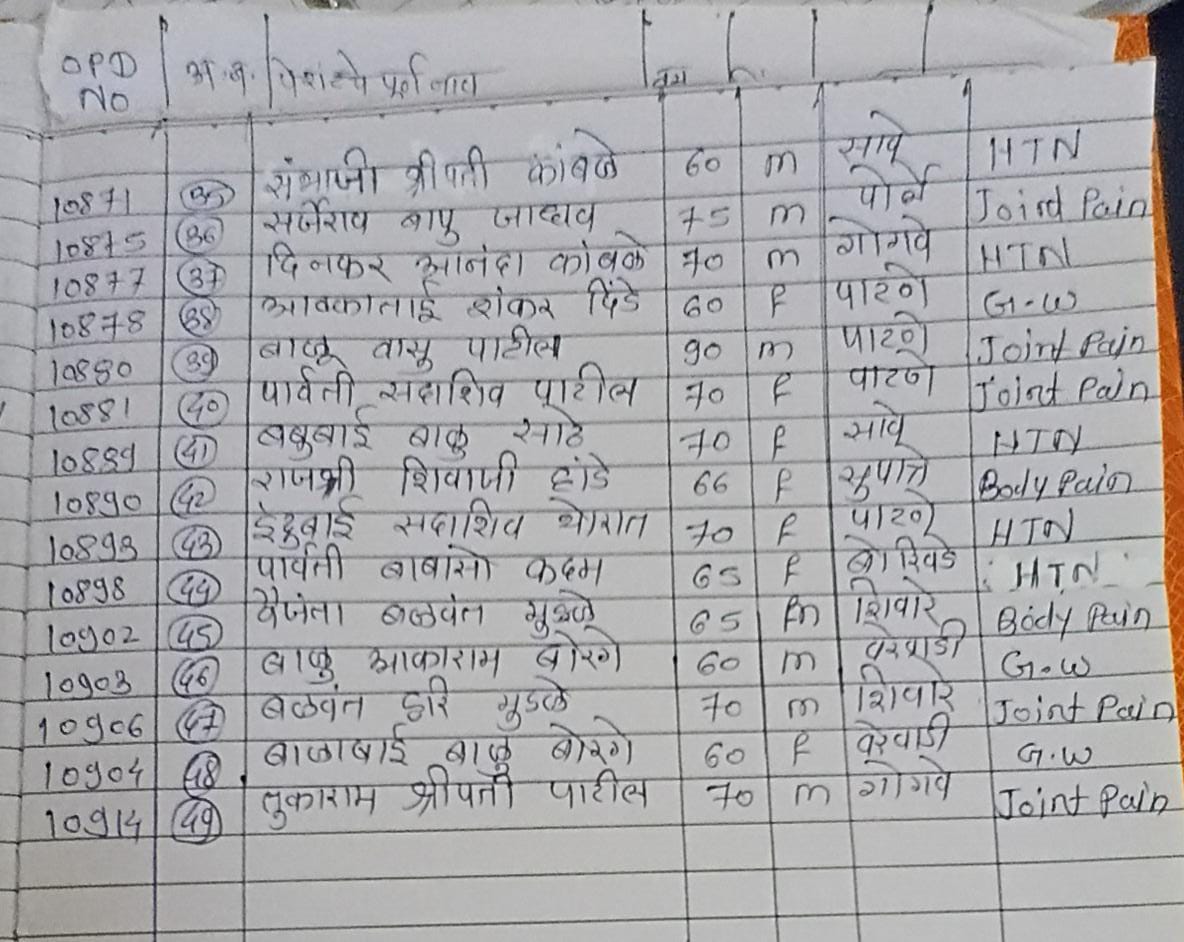 OPD NO अ.न. पूर्ण नाव वय
10871 35 संभाजी श्रीपती कांबळे 60 m सावे HTN
10875 36 सर्जेराव बापु जाधव 75 m Joird Pain
10877 37 दिनकर आनंदा कांबळे 70 m गोगवे HTN
10878 38 आक्काताई शंकर दिंडे 60 F पाटणे G.W
10880 39 बाळू वासू पाटील 90 m पाटणे Joint Pain
10881 40 पार्वती सदाशिव पाटील 70 F पाटणे Joint Pain
10889 41 बबुबाई बाळु साठे 70 F सावे HTN
10890 42 राजश्री शिवाजी हांडे 66 F सुपात्रे Body Pain
10893 43 ईंदुबाई सदाशिव थोरात 70 F पाटणे HTN
10898 44 पार्वती बाबासो कदम 65 F बोरिवडे HTN
10902 45 बळवंत मुडळे 65 शिवारे Body Pain
10903 46 बाळु आकाराम बोरगे 60 m वरेवाडी G.W
10906 47 बळवंत हरि मुडळे 70 m शिवारे Joint Pain
10904 48 बाळाबाई बाळू बोरगे 60 F वरेवाडी G.W
10914 49 तुकाराम श्रीपती पाटील 70 m गोगवे Joint Pain